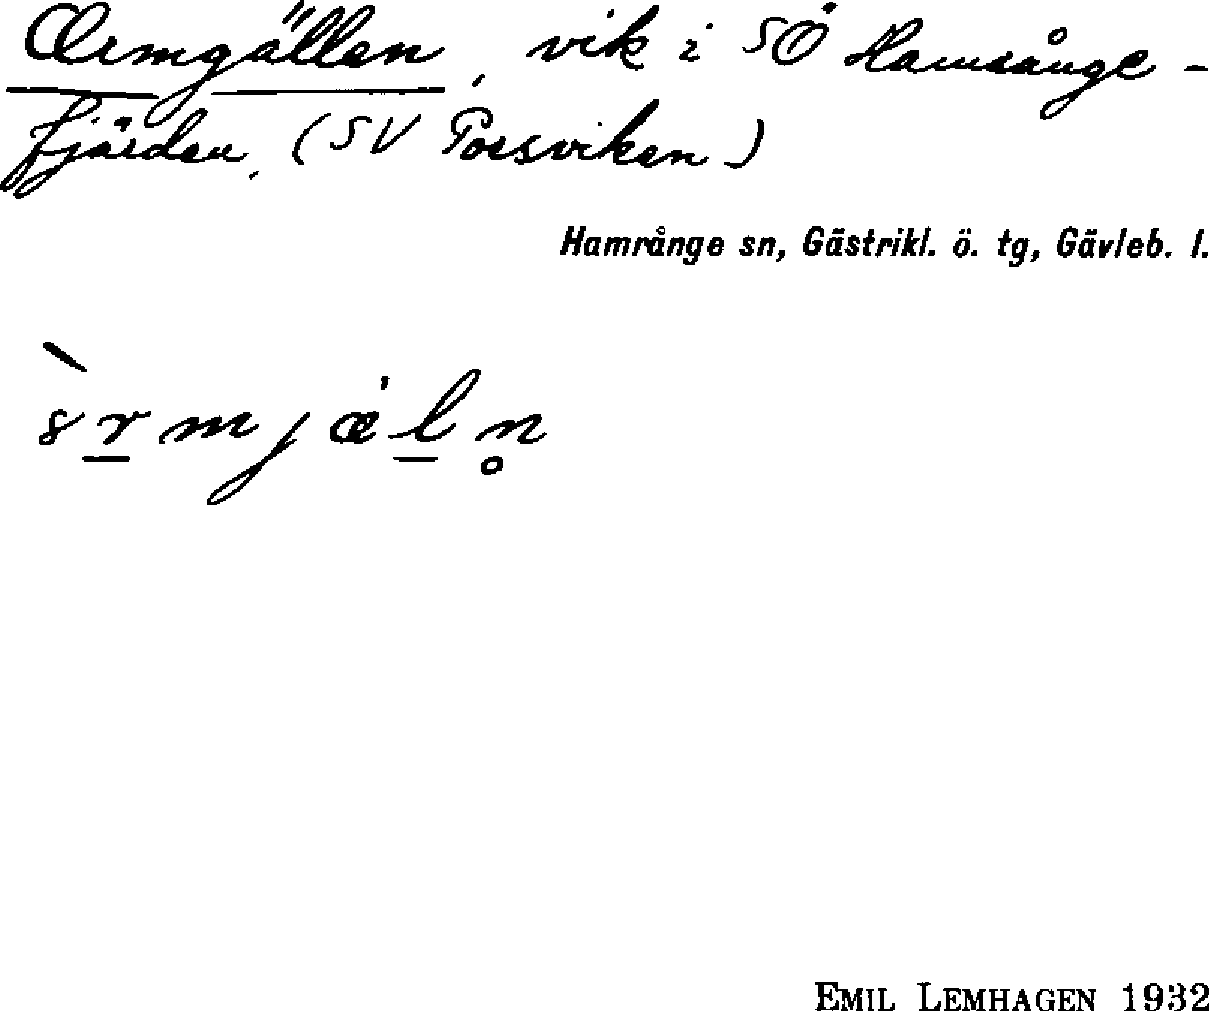 Ormgällen, vik i SÖ Hamrånge-
fjärden. (SV Porsviken)
Hamrånge sn, Gästrikl. ö. tg, Gävleb. l.
EMIL LEMHAGEN 1932